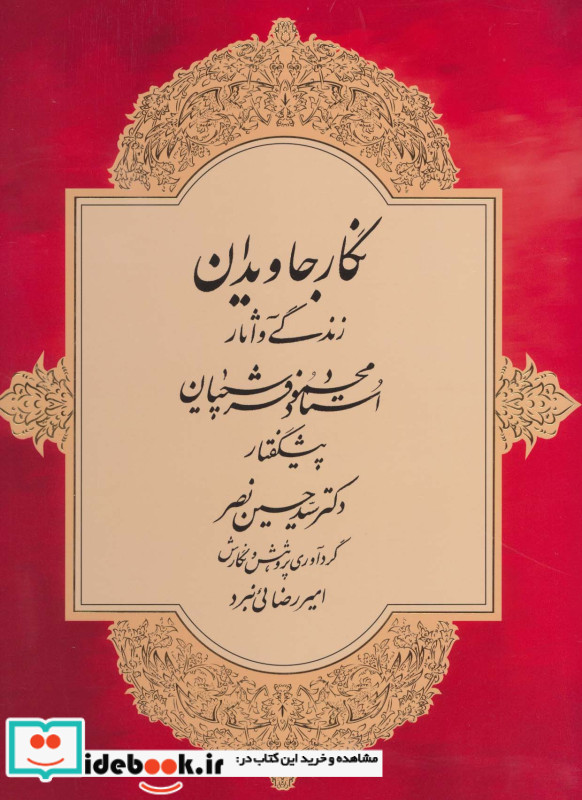 نگار جاویدان
زندگی و آثار
استاد محمود فرشچیان
پیشگفتار
دکتر سید حسین نصر
گردآوری پژوهش و نگارش
امیر رضائی نبرد
مشاهده و خرید این کتاب در:
idebook.ir